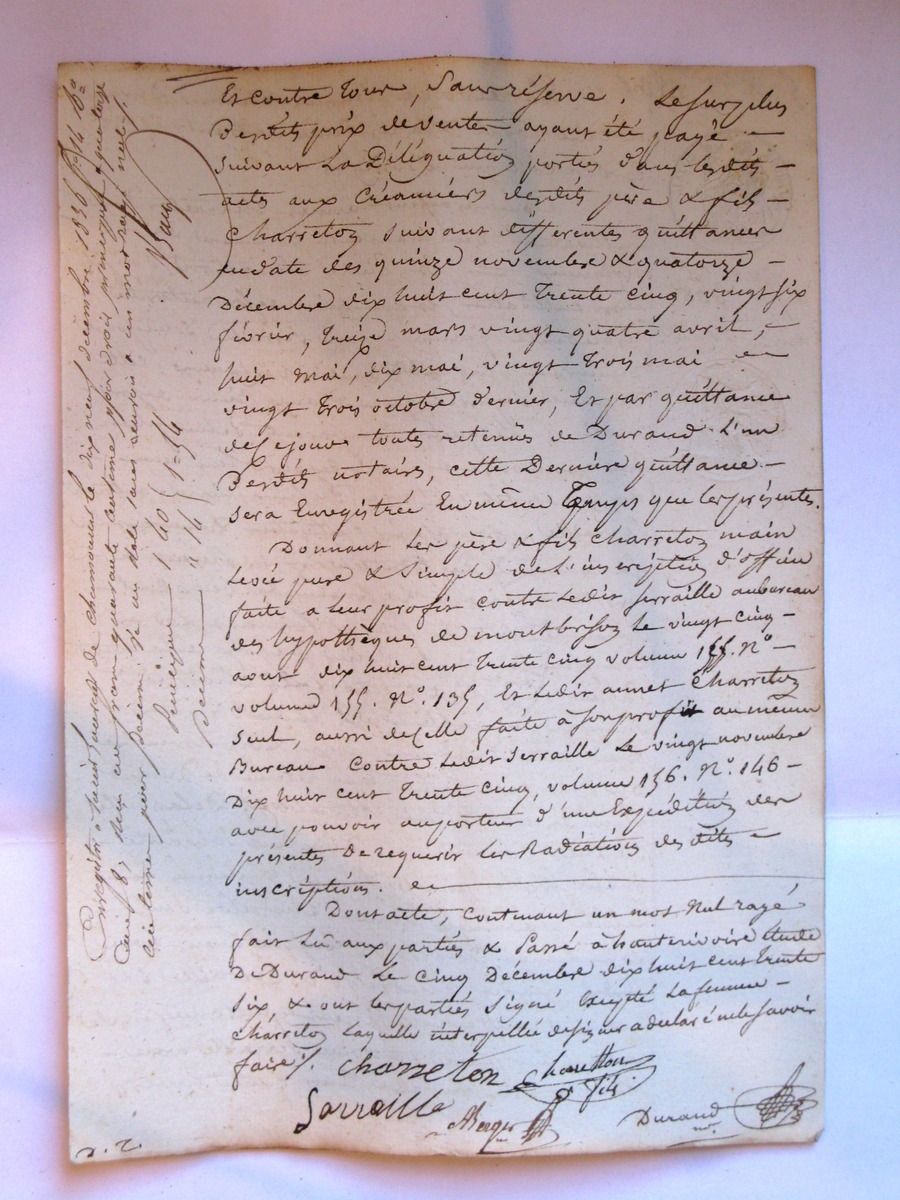 Et contre tous, Sans réserve. Le surplus
Desdits prix de ventes ayant été payé —
suivant La Délégation portés dans lesdits —
actes aux Créanciers desdits père & fils —
Charreton suivant différentes quittances
en date des quinze novembre & quatorze —
Décembre dix huit cent Trente cinq, vingt six
février, Treize mars vingt quatre avril, —
huit mai, dix mai, vingt Trois mai
vingt Trois octobre dernier, Et par quittance
de ce jour toutes retenües de Durand L'un
Desdits notaires, cette Dernière quittance —
sera Enregistrée En même Temps que les présentes.
Donnant les père & fils Charreton main
Levée pure & Simple de L'inscription d'office
faite a Leur profit contre Ledit Serraille au bureau
des hypothèques de montbrison Le vingt cinq —
aout dix huit cent Trente cinq volume 155. N.º —
volume 155. N.º 135, Et Ledit annet Charreton
seul, aussi de celle faite à son profit au même
Bureau contre Ledit Serraille Le vingt novembre
Dix huit cent Trente cinq, volume 156. N.º 146 —
avec pouvoir au porteur d'une Expédition des
présentes De requérir Les Radiations des dites —
inscriptions.
Dont acte, contenant un mot Nul rayé
fait Lû aux parties & Passé à hauterivoire Etude
De Durand Le cinq Décembre dix huit cent trente
six & ont les parties signé Excepté La femme —
Charreton Laquelle interpellée de signer a déclaré ne le savoir
faire /.
charreton Charretton fils
Sarraille Merger Durand
nre.
Enregistré à Saint Laurent de chamousset le dix neuf décembre 1836 fº 14 Rº
Case 8, reçu un franc quarante centime pour droit principal & quatorze
centimes pour décime
Principal 1 40
décime " 14
1=54